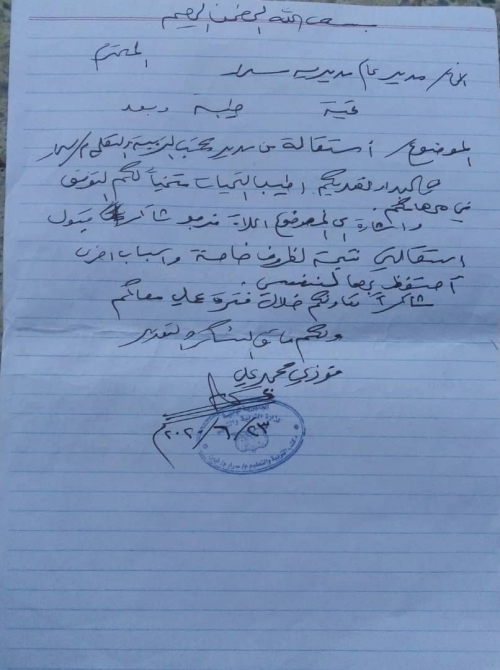 بسم الله الرحمن الرحيم
الاخ/ مدير عام مديرية سرار المحترم
تحية طيبة وبعد
الموضوع/ استقالة من مدير مكتب التربية والتعليم م/سرار
نهديكم اطيب التحيات متمنياً لكم التوفيق
في مهامكم.
واشارة الى الموضوع اعلاه نرجو شاكراً قبول
استقالتي نتيجة لظروف خاصة واسباب اخرى
أحتفظ بها لنفسي.
شاكراً تعاونكم خلال فترة عملي معاكم
ولكم فائق الشكر والتقدير
فوزي محمد علي
٢٠٢٠/٦/٢٣